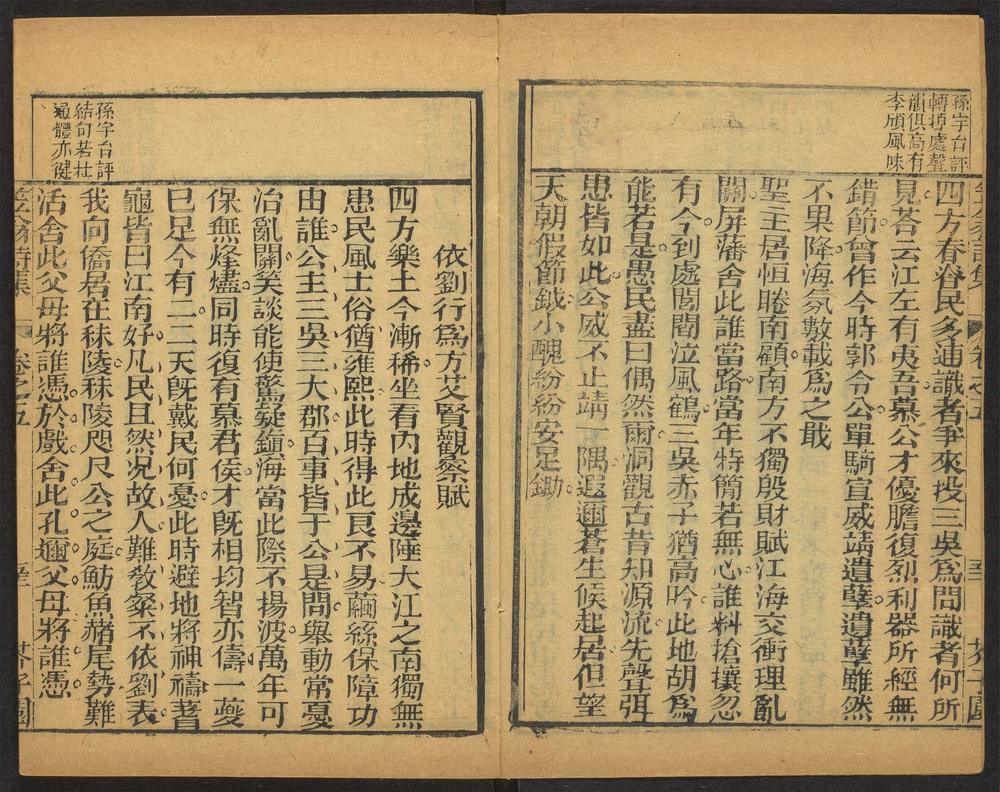 孫宇台評
轉掉處聲
韻俱高有
李頎風味
四方春眷民多逋識者爭來投三吳爲問識者何所
見荅云江左有夷吾慕公才優膽復烈利器所經無
錯節曾作今時郭令公單騎宣威靖遺孽遺孽雖然
不果降海氛數載爲之戢
聖主居恒睠南顧南方不獨殷財賦江海交衝理亂
關屏藩舍此誰當路當年特簡若無心誰料搶攘忽
有今到處閭閻泣風鶴三吳赤子猶高吟此地胡爲
能若是愚民盡曰偶然爾洞觀古昔知源流先聲弭
患皆如此公威不止靖一隅遐邇蒼生候起居但望
天朝假節鉞小醜紛紛安足鋤
笠翁詩集
卷之五
芥子園
孫宇台評
結句若杜
通體亦健
依劉行爲方艾賢觀察賦
四方樂土今漸稀坐看內地成邊陲大江之南獨無
患民風土俗猶雍熙此時得此良不易繭絲保障功
由誰公主三吳三大郡百事皆于公是問舉動常憂
治亂關笑談能使驚疑鎮海當此際不揚波萬年可
保無烽燧同時復有慕君侯才旣相均智亦儔一夔
巳足今有二二天旣戴民何憂此時避地將神禱蓍
龜皆曰江南好凡民且然況故人難敎粲不依劉表
我向僑居在秣陵秣陵咫尺公之庭魴魚赭尾勢難
活舍此父母將誰憑於戲舍此孔邇父母將誰憑
笠翁詩集
卷之五
芥子園